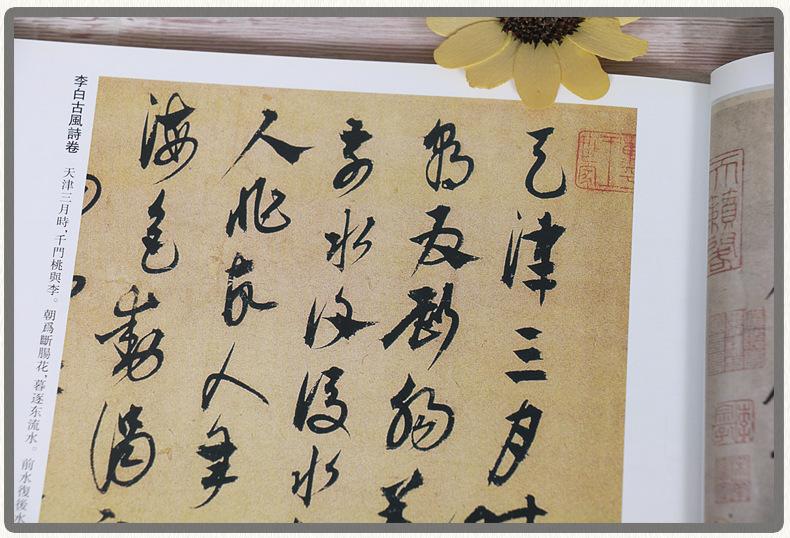 天津三月時
朝為斷腸花
前水復後水
人非人年
海色動謁
李白古風詩卷
天津三月時，千門桃與李。朝爲斷腸花，暮逐东流水。前水復後水
天籟閣